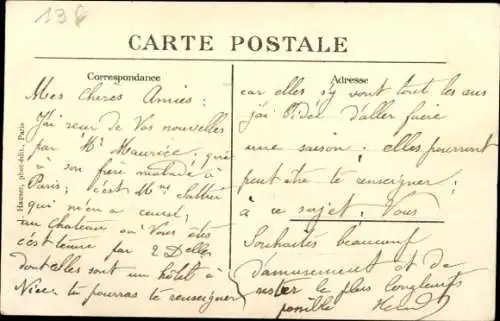 138
CARTE POSTALE
Correspondance
Mes chères Amies :
J'ai reçu de Vos nouvelles
par Mr Maurice, qui
a son frère malade à
Paris ; c'est Mme
qui m'en a causé ;
un chateau où Vous êtes
c'est tenue par 2 Delles
dont elles sont un hôtel à
Nice tu pourras te renseigner
Adresse
car elles s'y vont tout les ans
j'ai l'idée d'aller faire
une saison. elles pourront
peut être te renseigner
à ce sujet. Vous
Souhaites beaucoup
d'amusement et de
rester le plus longtemps
possible
Hauser, phot-édit., Paris